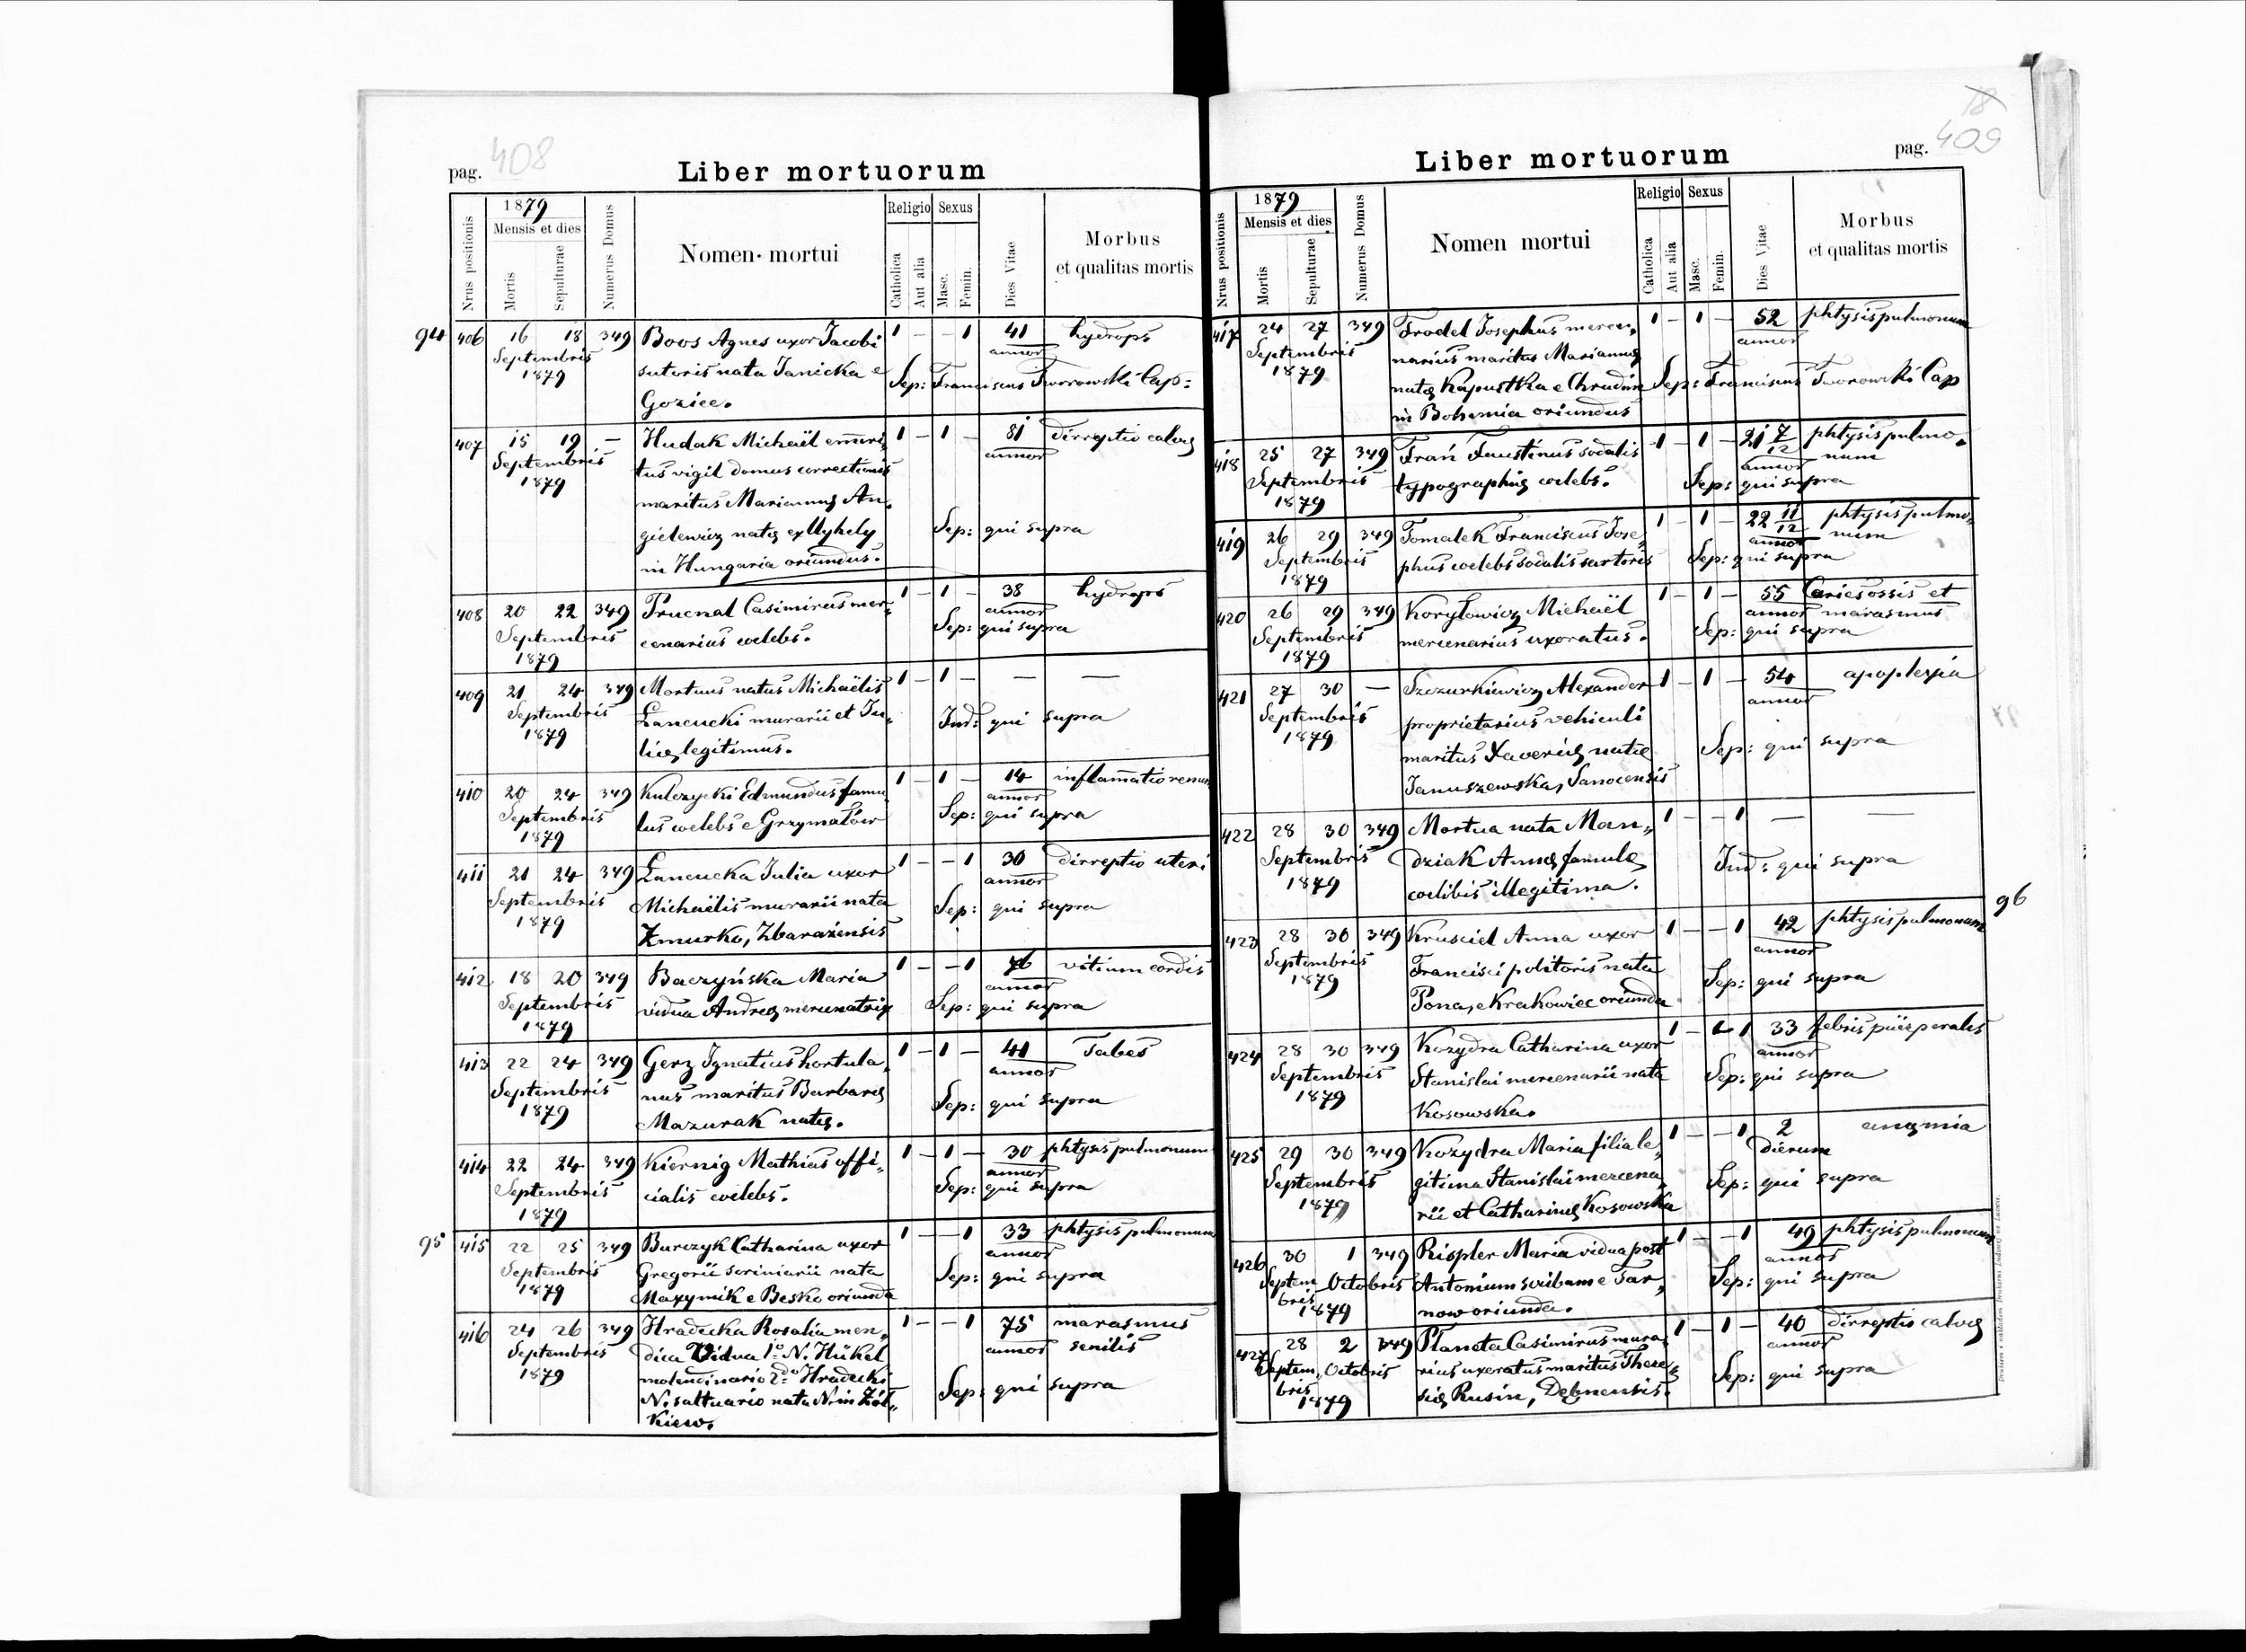 pag. 408
Liber mortuorum
Nrus positionis
1879
Mensis et dies
Mortis
Sepulturae
Numerus Domus
Nomen mortui
Religio
Catholica
Aut alia
Sexus
Masc.
Femin.
Dies Vitae
Morbus
et qualitas mortis
94 406 16 18 349 Boos Agnes uxor Jacobi 1 – – 1 41 hydrops
Septembris annor
1879 sutoris nata Janicka e
Sep: Franciscus Tworowski Cap:
Goziee.
407 15 19 – Hudak Michaël emeri, 1 – 1 – 81 dirreptio calvæ
Septembris tus vigil domus correctionis annor
1879
maritus Mariannæ An,
gielewicz natæ ex Ujhely Sep: qui supra
in Hungaria oriundus.
408 20 22 349 Prucnal Casimirus mer, 1 – 1 – 38 hydrops
Septembris cenarius coelebs. annor
1879 Sep: qui supra
409 21 24 349 Mortuus natus Michaëlis 1 – 1 – — —
Septembris Łancucki murarii et Ju,
1879 Ind: qui supra
liæ legitimus.
410 20 24 349 Kulczycki Edmundus famu, 1 – 1 – 14 inflamatio renum
Septembris lus coelebs e Grzymałów annor
1879 Sep: qui supra
411 21 24 349 Łancucka Julia uxor 1 – – 1 30 dirreptio uteri
Septembris Michaëlis murarii nata annor
1879 Sep: qui supra
Zmurko, Zbarażensis
412 18 20 349 Baczyńska Maria 1 – – 1 76 vitium cordis
Septembris vidua Andreæ mercenatrix annor
1879 Sep: qui supra
413 22 24 349 Gerz Ignatius hortula, 1 – 1 – 41 Tabes
Septembris nus maritus Barbaræ annor
1879 Sep: qui supra
Mazurak natæ.
414 22 24 349 Kiernig Mathias offi, 1 – 1 – 30 phtysis pulmonum
Septembris cialis coelebs. annor
1879 Sep: qui supra
95 415 22 25 349 Burczyk Catharina uxor 1 – – 1 33 phtysis pulmonum
Septembris Gregorii scriniarii nata annor
1879 Maxymik e Besko oriunda Sep: qui supra
416 24 26 349 Hradecka Rosalia men, 1 – – 1 75 marasmus
Septembris dica Vidua 1º N. Hükel annor senilis
1879 molendinario 2do Hradecki
N. saltuario nata N. in Żół, Sep: qui supra
kiew.
18
pag. 409
Liber mortuorum
Nrus positionis
1879
Mensis et dies
Mortis
Sepulturae
Numerus Domus
Nomen mortui
Religio
Catholica
Aut alia
Sexus
Masc.
Femin.
Dies Vitae
Morbus
et qualitas mortis
417 24 27 349 Frodel Josephus mercen, 1 – 1 – 52 phtysis pulmonum
Septembris narius maritus Mariannæ annor
1879 natæ Kapustka e Chrudim Sep: Franciscus Tworowski Cap
in Bohemia oriundus
418 25 27 349 Frań Faustinus sodalis 1 – 1 – 21 7/12 phtysis pulmo,
Septembris typographiæ coelebs. annor num
1879 Sep: qui supra
419 26 29 349 Tomalek Franciscus Jose, 1 – 1 – 22 11/12 phtysis pulmo,
Septembris phus coelebs sodalis sartoris annor num
1879 Sep: qui supra
420 26 29 349 Koryłowicz Michaël 1 – 1 – 55 Caries ossis et
Septembris mercenarius uxoratus. annor marasmus
1879 Sep: qui supra
421 27 30 – Szczurkiewicz Alexander 1 – 1 – 54 apoplexia
Septembris proprietarius vehiculi annor
1879 maritus Xaveriæ natæ Sep: qui supra
Januszewska, Sanocensis
422 28 30 349 Mortua nata Man,, 1 – – 1 — —
Septembris dziak Annæ famulæ Ind: qui supra
1879 coelibis illegitima.
423 28 30 349 Krusciel Anna uxor 1 – – 1 42 phtysis pulmonum 96
Septembris Francisci politoris nata annor
1879 Pona, e Krakowiec oriunda Sep: qui supra
424 28 30 349 Kozydra Catharina uxor 1 – – 1 33 febris püerperalis
Septembris Stanislai mercenarii nata annor
1879 Kosowska. Sep: qui supra
425 29 30 349 Kozydra Maria filia le, 1 – – 1 2 anæmia
Septembris gitima Stanislai mercena, dierum
1879 rii et Catharinæ Kosowska Sep: qui supra
426 30 1 349 Rispler Maria vidua post 1 – – 1 49 phtysis pulmonum
Septem Octobris Antonium scribam e Tar, annor
bris
1879 now oriunda. Sep: qui supra
427 28 2 349 Płaneta Casimirus mura, 1 – 1 – 40 dirreptio calvæ
Septem, Octobris rius uxoratus maritus There, annor
bris
1879 siæ Rusin, Dębnensis. Sep: qui supra